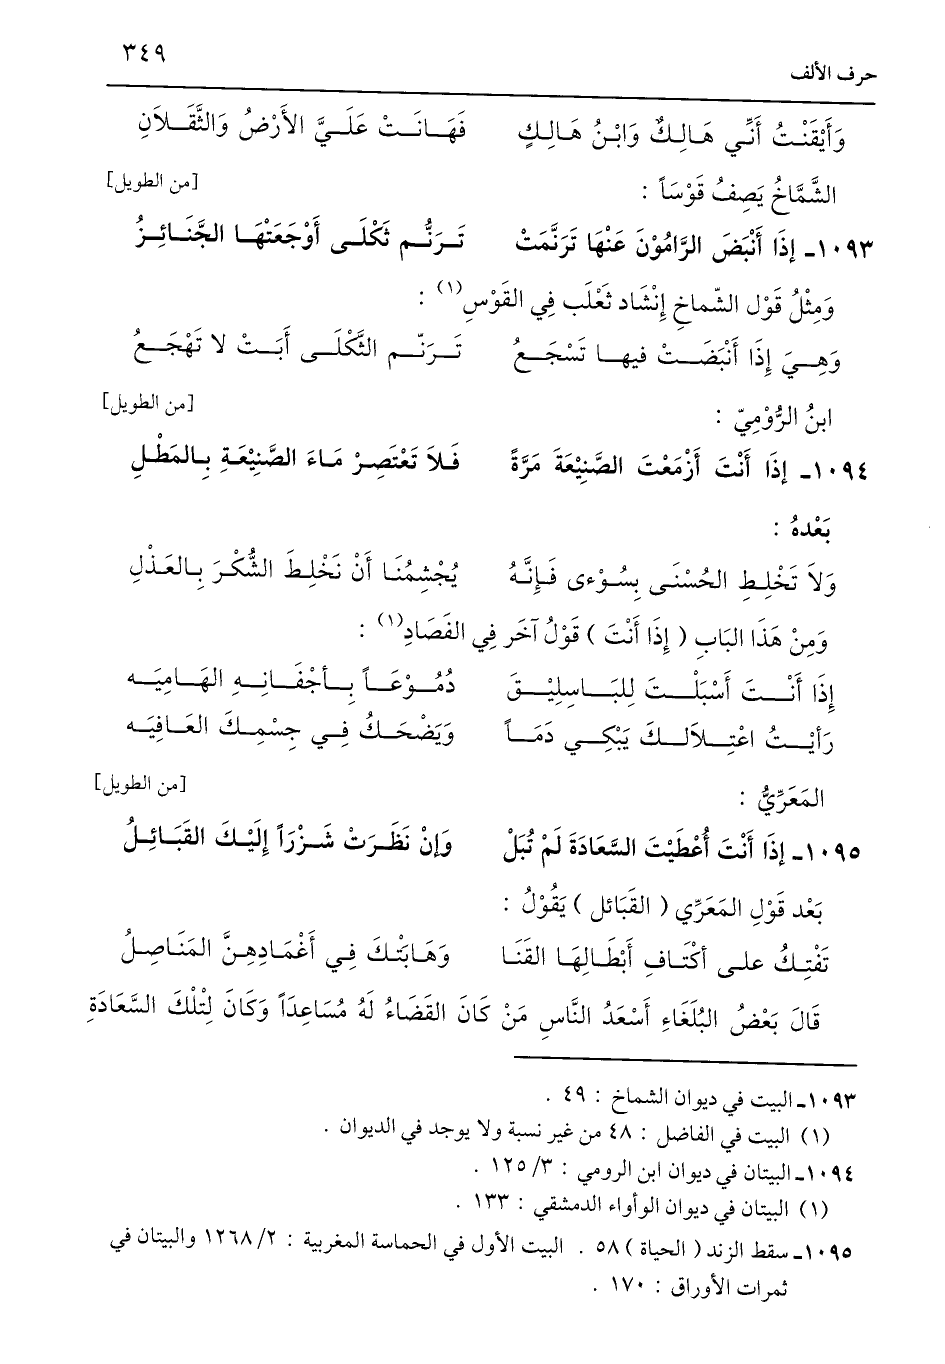 حرف الألف ٣٤٩
وَأَيْقَنْتُ أَنِّي هَالِكٌ وَابْنُ هَالِكٍ فَهَانَتْ عَلَيَّ الأَرْضُ وَالثَّقَلاَنِ
الشَّمَّاخُ يَصِفُ قَوْسَاً : [من الطويل]
١٠٩٣ـ إِذَا أَنْبَضَ الرَّامُوْنَ عَنْهَا تَرَنَّمَتْ تَرَنُّم ثَكْلَى أَوْجَعَتْهَا الجَّنَائِزُ
وَمِثْلُ قَوْل الشّماخِ إِنْشَاد ثَعْلَب فِي القَوْسِ(١) :
وَهِيَ إِذَا أَنْبَضَتْ فيهَا تَسْجَعُ تَرَنّم الثَّكْلَى أَبَتْ لا تَهْجَعُ
ابنُ الرُّوْمِيّ : [من الطويل]
١٠٩٤ـ إِذَا أَنْتَ أَزْمَعْتَ الصَّنِيْعَةَ مَرَّةً فَلاَ تَعْتَصِرْ مَاءَ الصَّنِيْعَةِ بِالمَطْلِ
بَعْدهُ :
وَلاَ تَخْلِطِ الحُسْنَى بِسُوْءى فَإِنَّهُ يُجْشِمُنَا أَنْ نَخْلِطَ الشُّكْرَ بِالعَذْلِ
وَمِنْ هَذَا البَابِ ( إِذَا أَنْتَ ) قَوْلُ آخَر فِي الفَصَادِ(١) :
إِذَا أَنْتَ أَسْبَلْتَ لِلبَاسِلِيْقَ دُمُوْعَاً بِأَجْفَانِهِ الهَامِيَه
رَأَيْتُ اعْتِلاَلَكَ يَبْكِي دَمَاً وَيَضْحَكُ فِي جِسْمِكَ العَافِيَه
المَعَرِّيُّ : [من الطويل]
١٠٩٥ـ إِذَا أَنْتَ أُعْطَيْتَ السَّعَادَةَ لَمْ تُبَلْ وَإِنْ نَظَرَتْ شَزْرَاً إِلَيْكَ القَبَائِلُ
بَعْد قَوْلِ المَعَرِّي ( القَبَائل ) يَقُوْلُ :
تَفْتِكُ على أكْتَافِ أَبْطَالِهَا القَنَا وَهَابَتْكَ فِي أَغْمَادِهِنَّ المَنَاصِلُ
قَالَ بَعْضُ البُلَغَاءِ أَسْعَدُ النَّاسِ مَنْ كَانَ القَضَاءُ لَهُ مُسَاعِدَاً وَكَانَ لِتْلكَ السَّعَادَةِ
١٠٩٣ـ البيت في ديوان الشماخ : ٤٩ .
(١) البيت في الفاضل : ٤٨ من غير نسبة ولا يوجد في الديوان .
١٠٩٤ـ البيتان في ديوان ابن الرومي : ٣/ ١٢٥ .
(١) البيتان في ديوان الوأواء الدمشقي : ١٣٣ .
١٠٩٥ـ سقط الزند ( الحياة ) ٥٨ . البيت الأول في الحماسة المغربية : ٢/ ١٢٦٨ والبيتان في
ثمرات الأوراق : ١٧٠ .